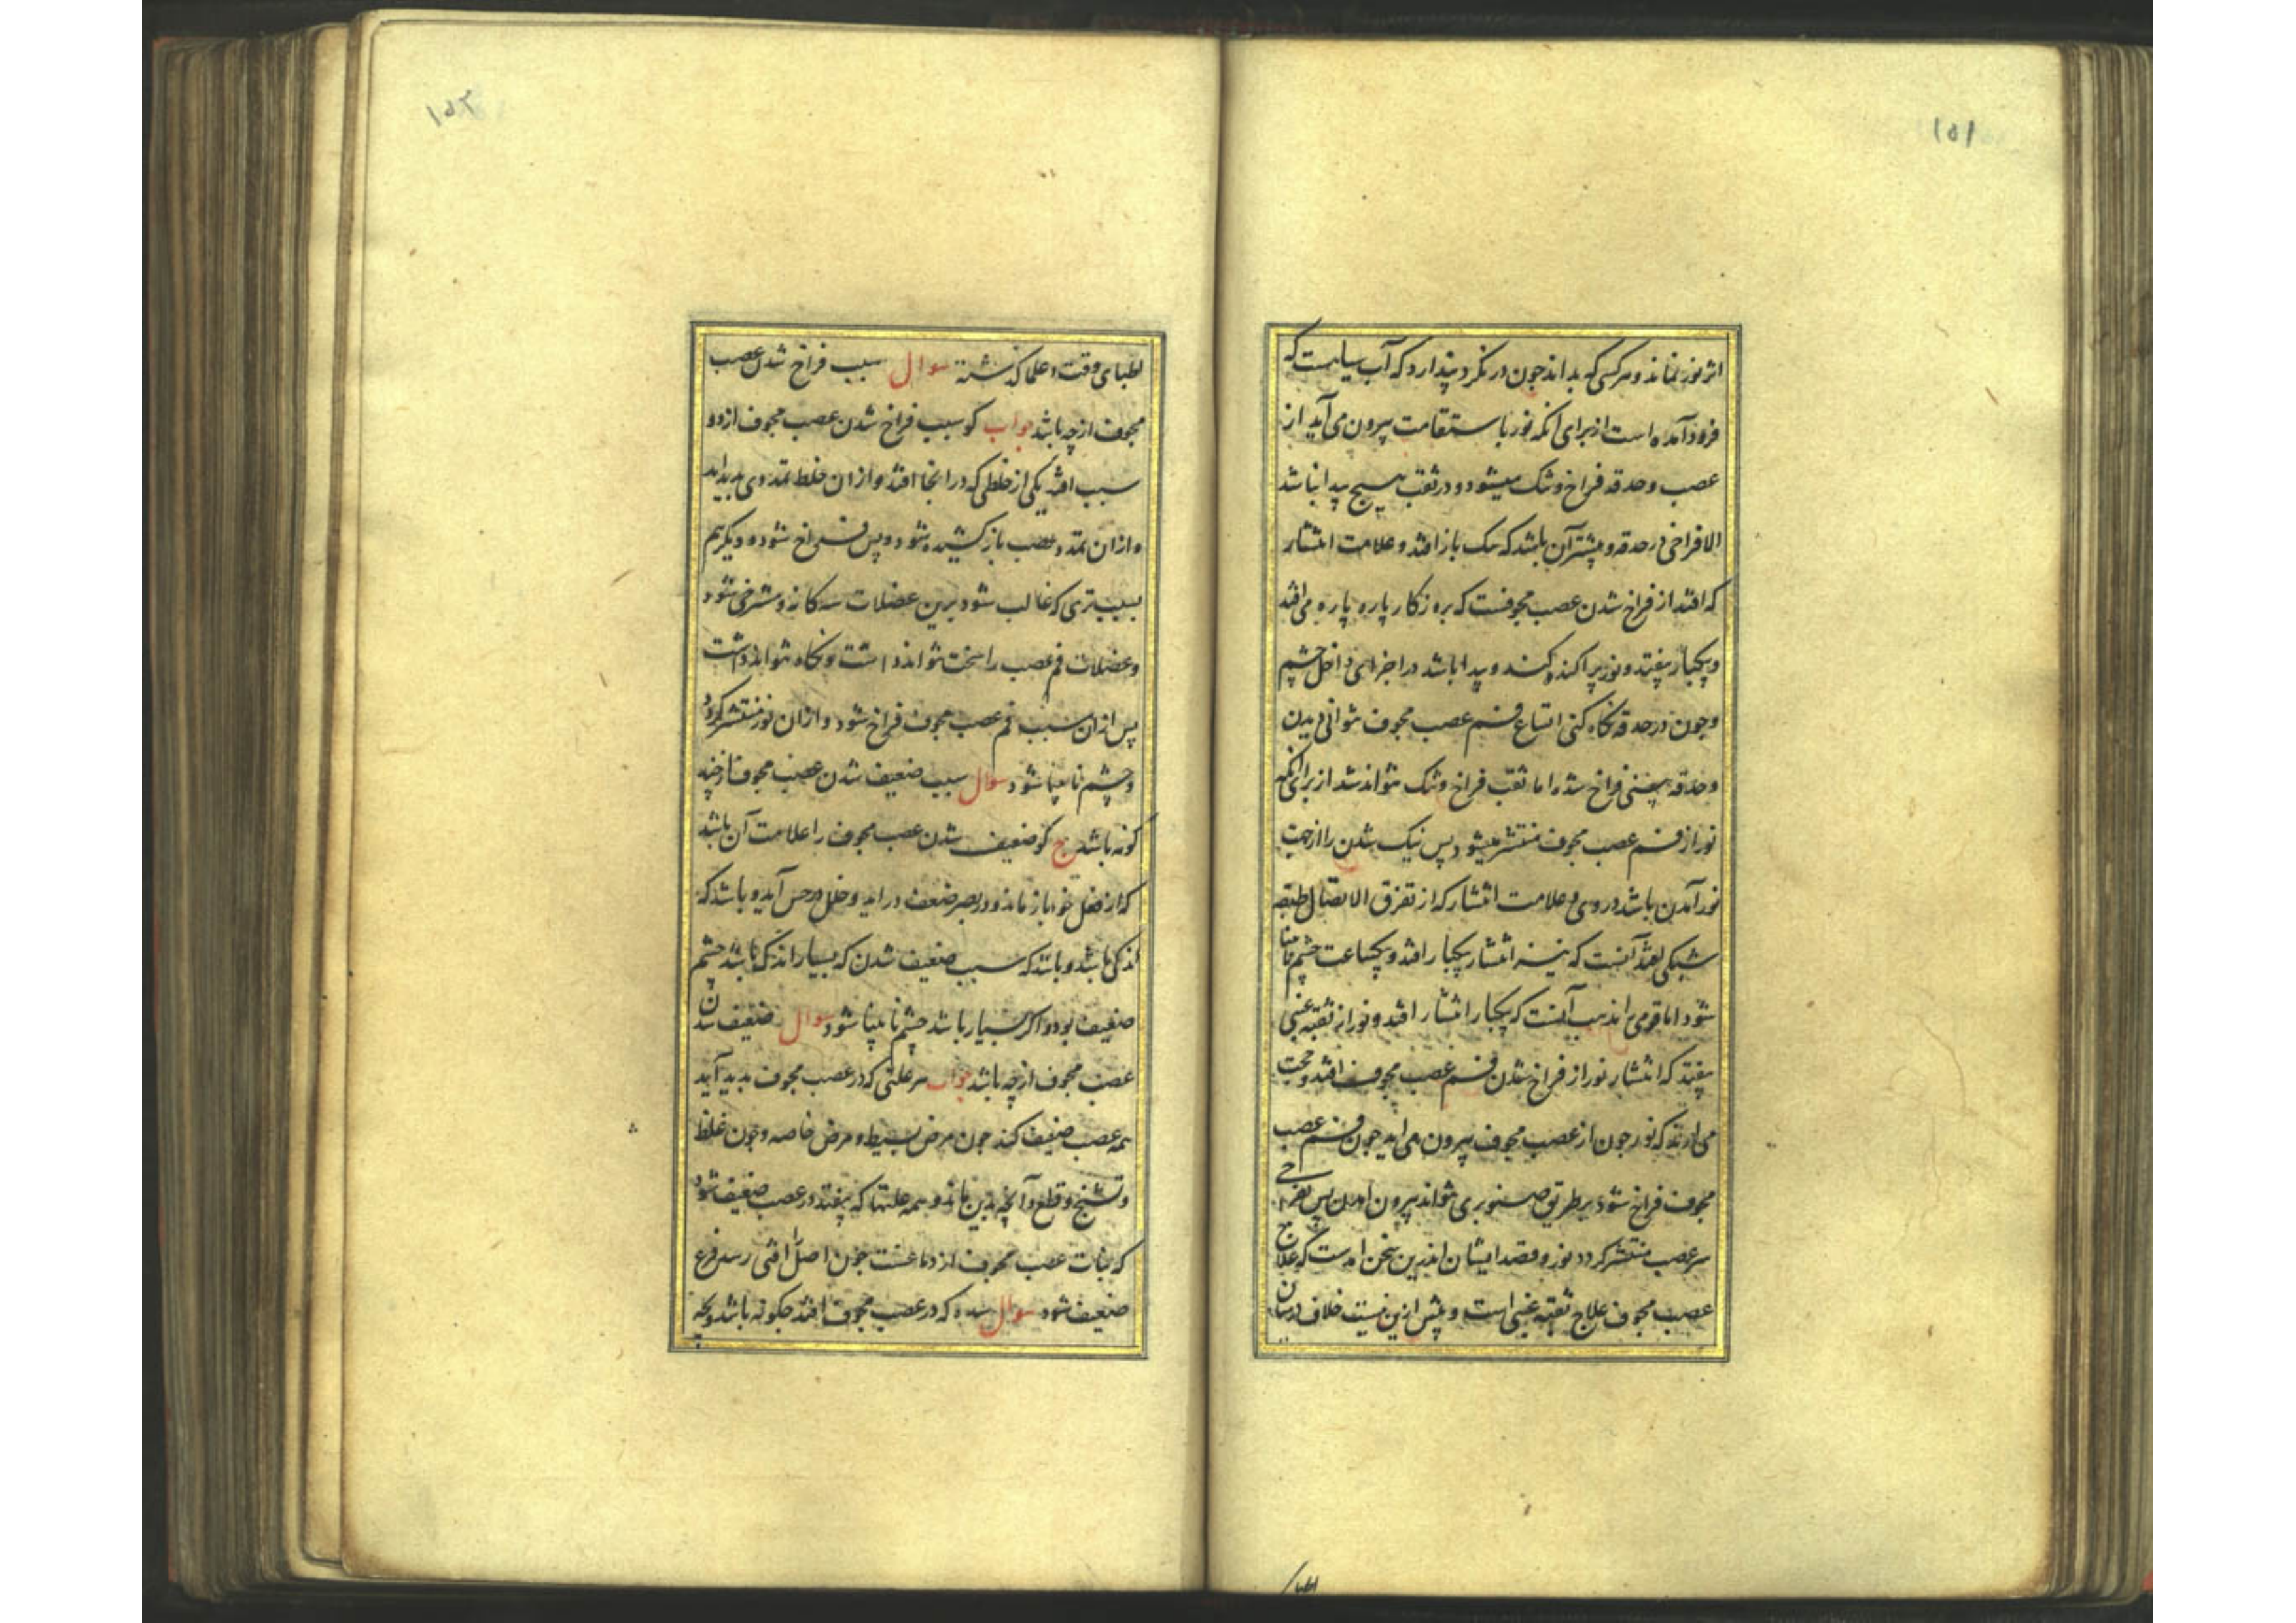 ۱۵۱
اثر نور نماند و هر کسی که بداند چون در نگرد پندارد که آب سیاهست که
فرود آمده است از برای آنکه نور باستقامت بیرون می آید از
عصب و حدقه فراخ و تنک میشود و در ثقب هیچ پیدا نباشد
الا فراخی در حدقه و بیشتر آن باشد که سک باز افتد و علامت انتشار
که افتد از فراخ شدن عصب مجوفست که بروزکار پاره پاره می افتد
و یکبار بیفتد و نور پراکنده کند و پیدا باشد در اجزای داخل چشم
و چون در حدقه نکاه کنی اتساع فم عصب مجوف توانی دیدن
و حدقه فراخ شده اما ثقب فراخ و تنک نتواند شد از برای آنکه
نور از فم عصب مجوف منتشر میشود پس نیک شدن را از جهت
نور آمدن باشد در وی و علامت انتشار که از تفرق الاتصال طبقه
شبکی افتد آنست که نیز انتشار یکبار افتد و یکساعت چشم نابینا
شود اما قومی را مذهب آنست که یکبار انتشار افتد و نور از ثقبه عنبی
بیفتد که انتشار نور از فراخ شدن فم عصب مجوف افتد و حجت
می ارند که نور چون از عصب مجوف بیرون می اید چون فم عصب
مجوف فراخ شود بر طریق صنوبری نتواند بیرون امدن پس بفراخی
سر عصب منتشر کردد نور و قصد ایشان اندرین سخن اینست که علاج
عصب مجوف علاج ثقبه عنبی است و پیش ازین نیست خلاف در میان
اطبا
۱۵۲
اطبای وقت و علماء گذشته سوال سبب فراخ شدن عصب
مجوف از چه باشد جواب کو سبب فراخ شدن عصب مجوف از دو
سبب افتد یکی از خلطی که در انجا افتد و از ان خلط تمددی پدید اید
و از ان تمدد عصب باز کشیده شود و پس فراخ شود و دیکر هم
بسبب تری که غالب شود برین عضلات سه کانه و مسترخی شود
و عضلات فم عصب را سخت نتواند داشت و نکاه نتواند داشت
پس از ان سبب فم عصب مجوف فراخ شود و از ان نور منتشر کردد
و چشم نابینا شود سوال سبب ضعیف شدن عصب مجوف از چه
کونه باشد ج کو ضعیف شدن عصب مجوف را علامت آن باشد
که از فعل خود باز ماند و در بصر ضعف در اید و خلل در حس آید و باشد که
اندکی باشد و باشد که سبب ضعیف شدن که بسیار اندک باشد چشم
ضعیف بود و اکر بسیار باشد چشم نابینا شود سوال ضعیف شدن
عصب مجوف از چه باشد جواب هر علتی که در عصب مجوف پدید آید
همه عصب ضعیف کند چون مرض بسیط و مرض خاصه و چون غلظ
و تشنج و قطع و آنچه بدین ماند و همه علتها که بیفتد در عصب ضعیف شود
که نبات عصب مجوف از دماغست چون اصل را افتی رسد فرع
ضعیف شود سوال سده که در عصب مجوف افتد چکونه باشد و بچه